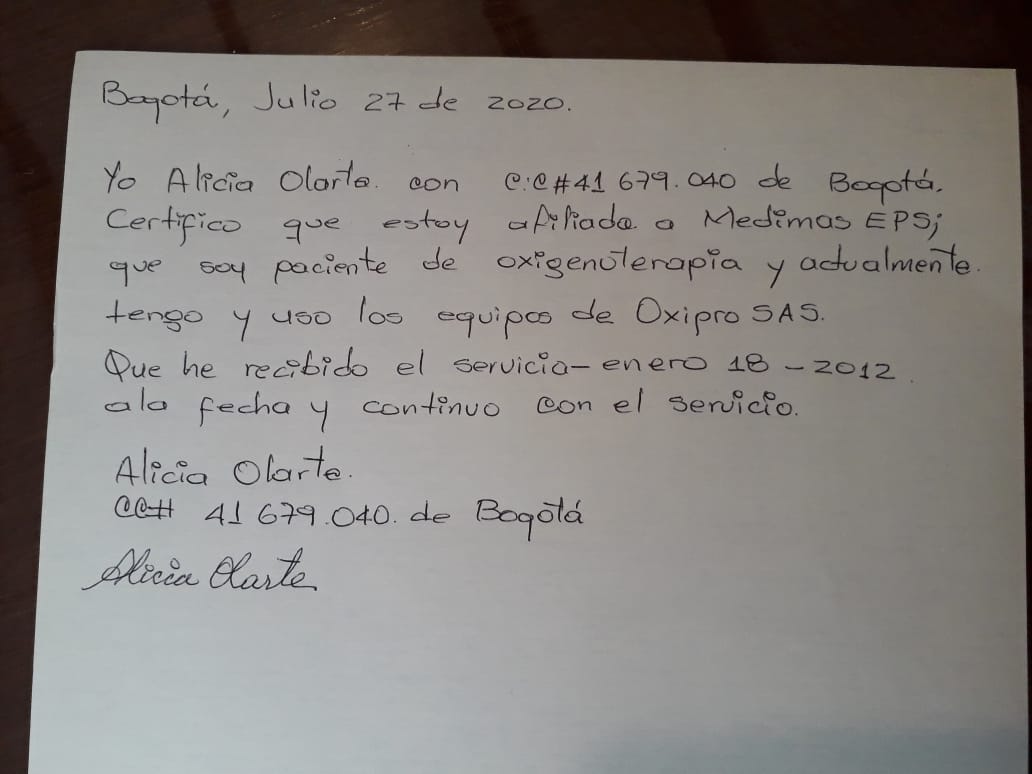 Bogotá, Julio 27 de 2020.
Yo Alicia Olarte. con C.C#41 679.040 de Bogotá.
Certifico que estoy afiliada a Medimas EPS;
que soy paciente de oxigenoterapia y actualmente.
tengo y uso los equipos de Oxipro SAS.
Que he recibido el servicio-enero 18-2012.
a la fecha y continuo con el servicio.
Alicia Olarte.
CC# 41 679.040. de Bogotá
Alicia Olarte